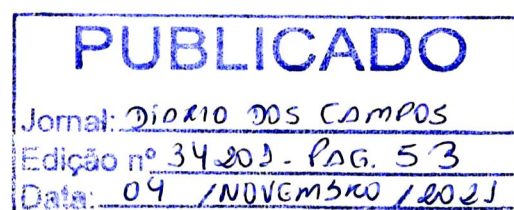 PUBLICADO
Jornal: DIARIO DOS CAMPOS
Edição nº 34201 - PAG. 53
Data: 04 / NOVEMBRO / 2021